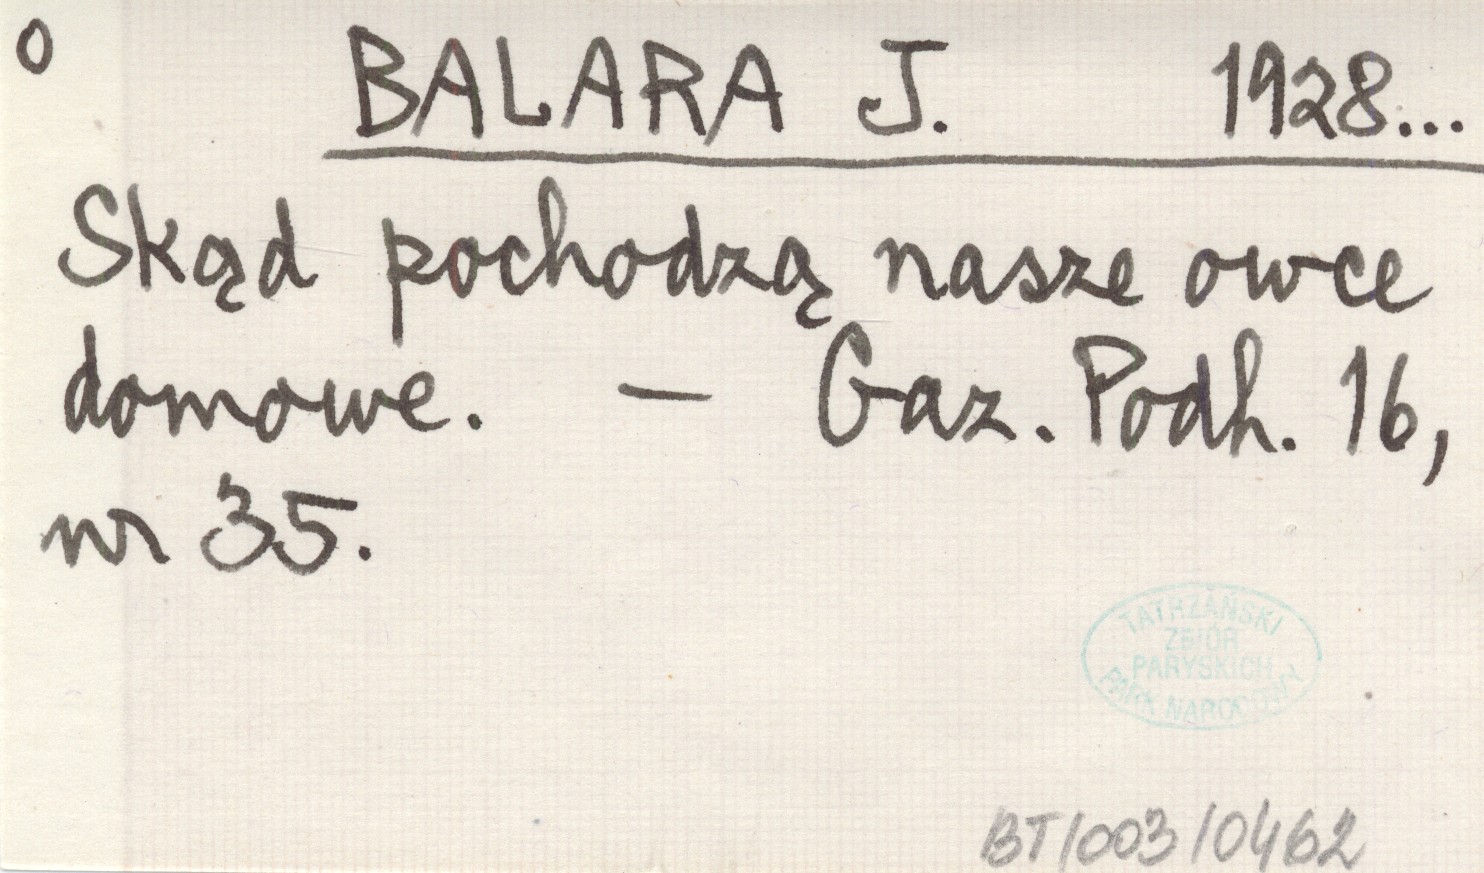 o
BALARA J. 1928...
Skąd pochodzą nasze owce
domowe. — Gaz. Podh. 16,
nr 35.
TATRZAŃSKI
ZBIÓR
PARYSKICH
PARK NARODOWY
BT/003/0462